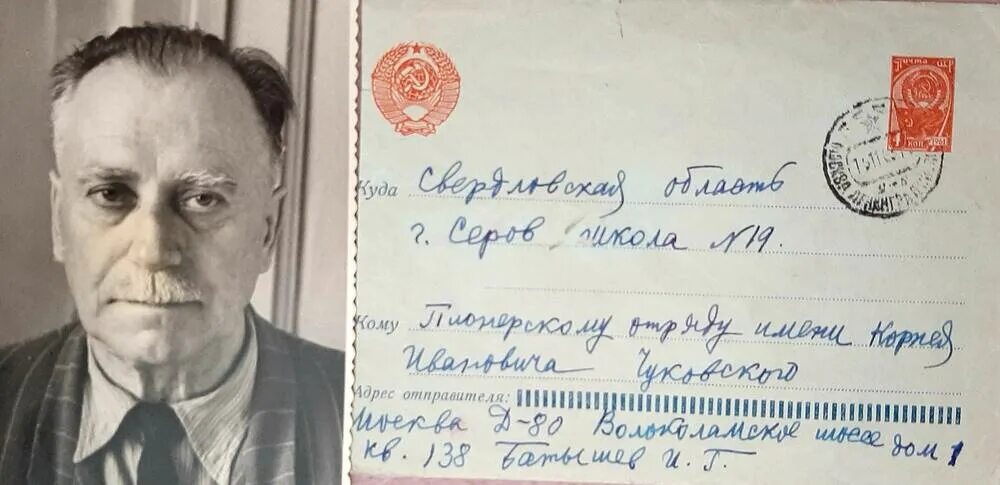 Почта СССР
4 КОП 1961
МОСКВА
Куда Свердловская область
г. Серов школа N19.
Кому Пионерскому отряду имени Корнея
Ивановича Чуковского
Адрес отправителя:
Москва Д-80 Волоколамское шоссе дом 1
кв. 138 Батышев И. Г.